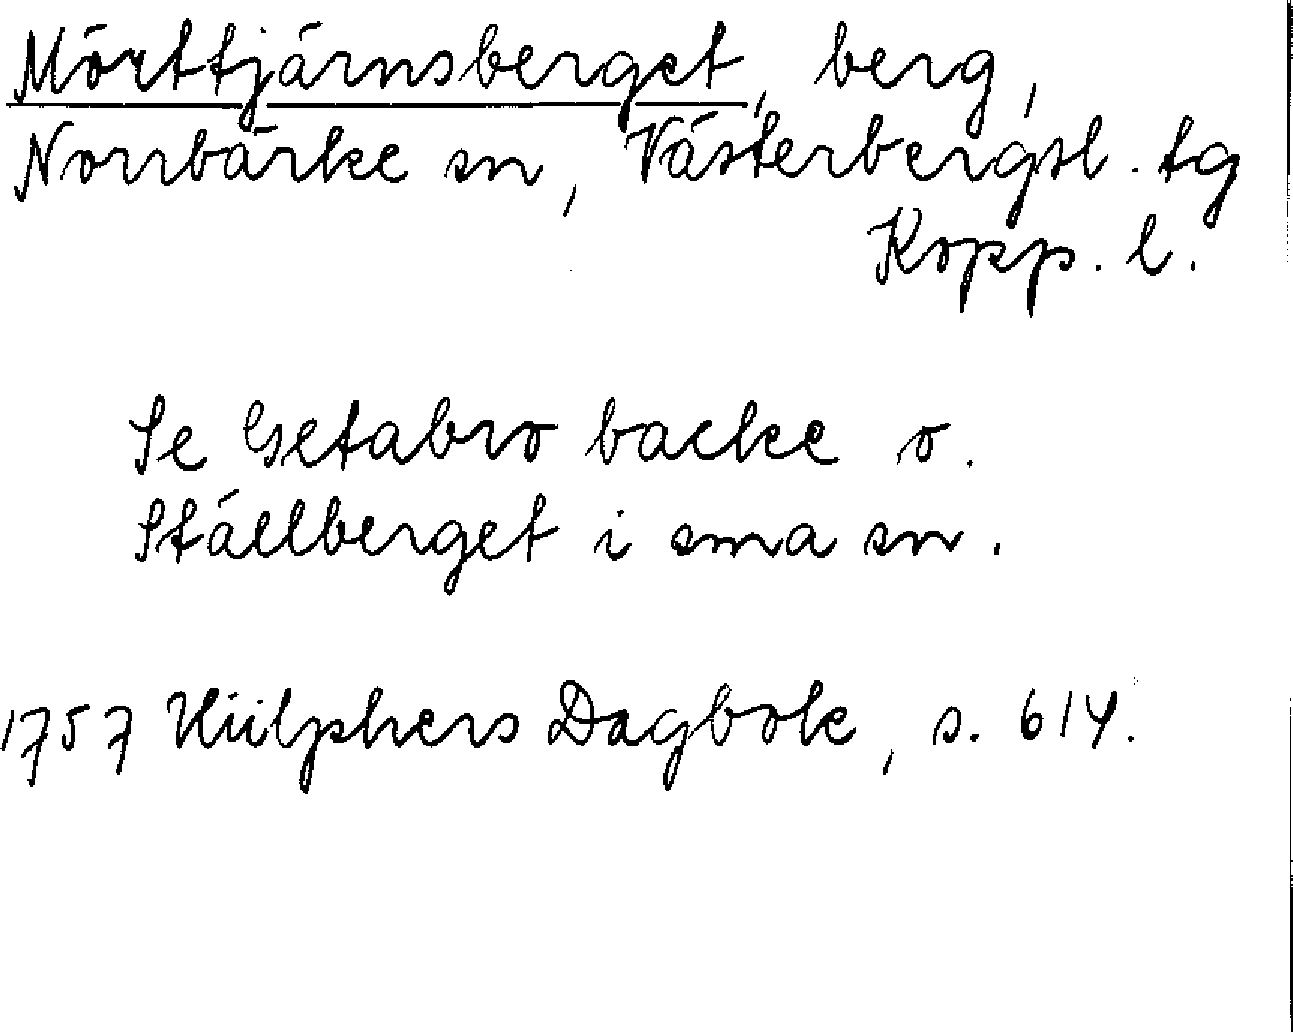 Mörttjärnsberget, berg,
Norrbärke sn, Västerbergsl. tg
Kopp. l.
Se Getabro backe o.
Ställberget i sma sn.
1757 Hülphers Dagbok, s. 614.